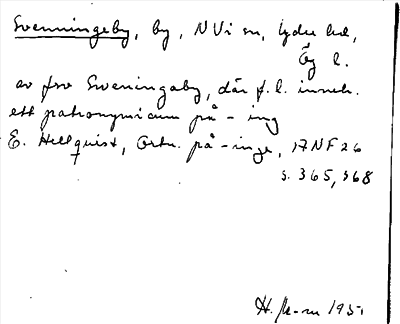 Svenningeby, by, N Vi sn, Ydre hd,
Ög l.
av fsv Sweningaby, där f.l. inneh.
ett patronymicum på -ing
E. Hellquist, Ortn. på -inge, ANF 26
s. 365, 368
H. 1951